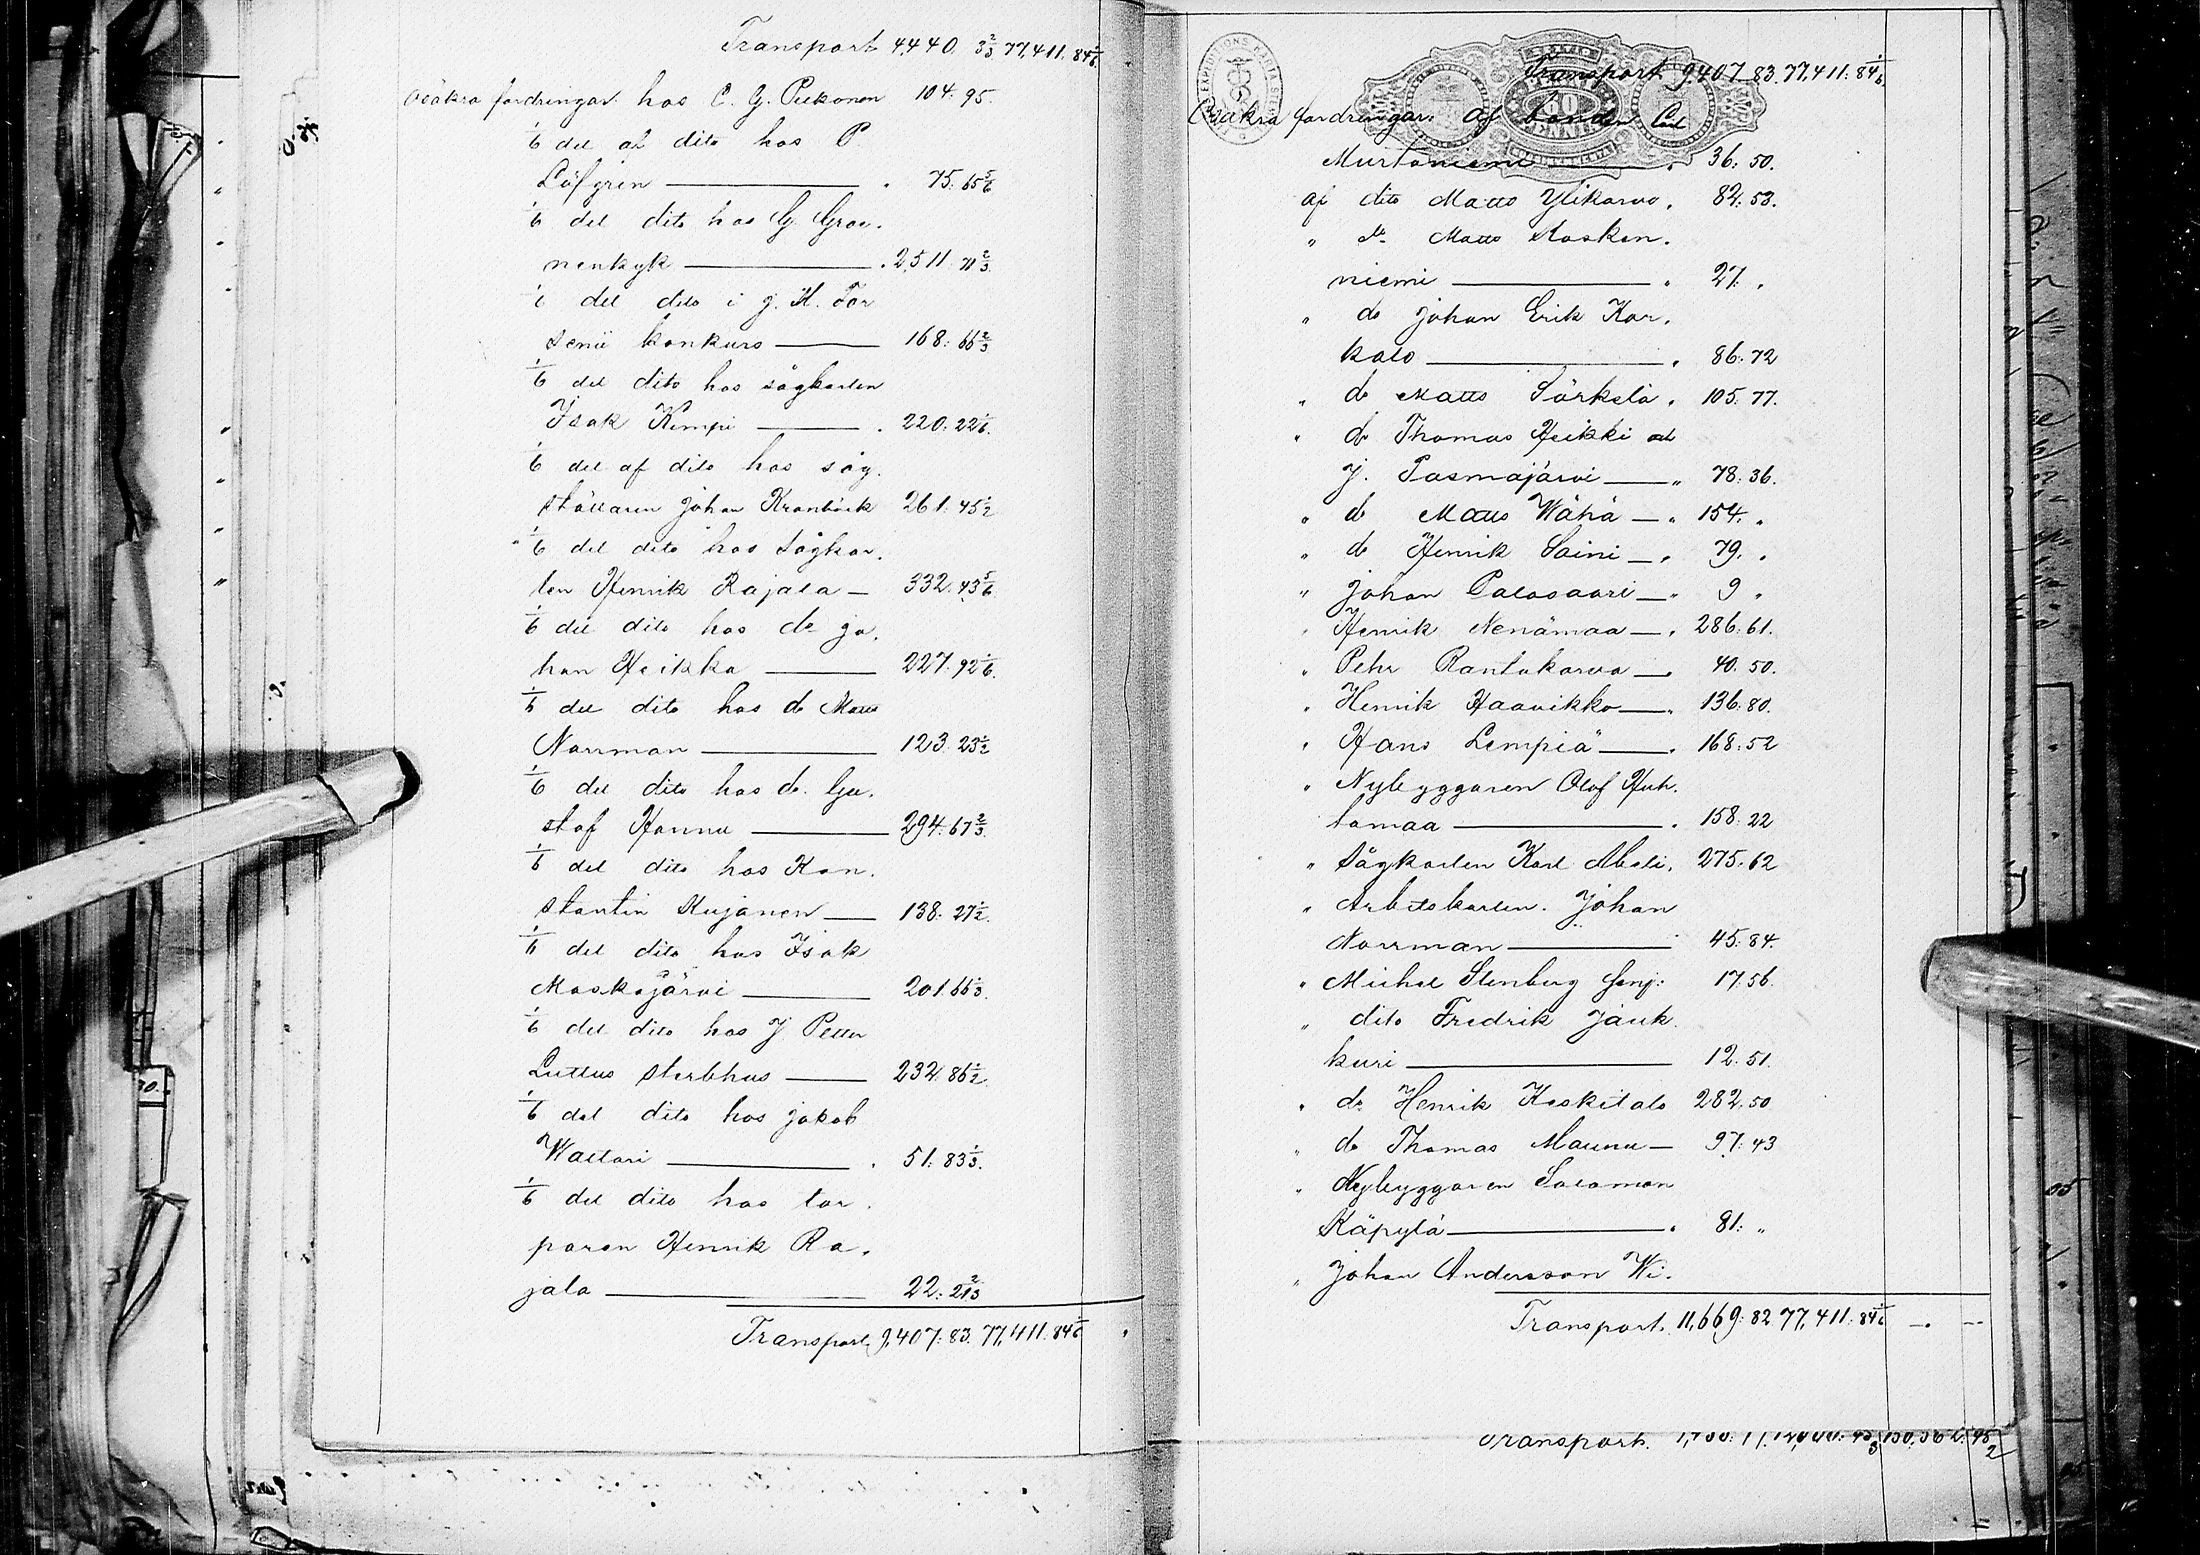 Transport 4,440. 3 2/3 77,411: 84 1/6.
Osäkra fordringar: hos C. G. Piekonen 104: 95.
1/6 del af dito hos P.
Löfgren — . 75: 65 5/6
1/6 del dito hos G. Grön.
— . 2,511. 71 2/3
1/6 del dito i J. H. For
senii konkurs — 168: 66 2/3
1/6 del dito hos sågkarlen
Isak Kempi — . 220: 22 1/6.
1/6 del af dito hos såg.
ställaren Johan Kronbäck 261: 45 1/2
1/6 del dito hos Sågkar.
len Henrik Rajala — 332. 43 5/6
1/6 del dito hos do Jo.
han Heikka — 227. 92 1/6.
1/6 del dito hos do Matts
Norrman — 123. 23 1/2
1/6 del dito hos do. Gu.
staf Hannu — 294. 67 2/3
1/6 del dito hos Kon.
stantin Kujanen — 138. 27 1/2.
1/6 del dito hos Isak
Moskojärvi — 201. 66 1/3.
1/6 del dito hos J Petter
Luttus Sterbhus — 232. 86 1/2.
1/6 del dito hos Jakob
Waltari — . 51: 83 1/3.
1/6 del dito hos tor.
paren Henrik Ra.
jala — 22: 21 2/3
Transport. 9,407: 83. 77,411: 84 1/6
Transport. 9,407. 83. 77,411: 84 1/6.
Osäkra fordringar: af bonden Carl
Murtoniemi — . 36: 50.
af dito Matts Ylikarvo. 82: 53.
" do Matts Kosken.
niemi — . 27: .
" do Johan Erik Kar.
kalo — . 86: 72
" do Matts Särkelä. 105: 77.
" do Thomas Heikki och
J. Pasmajärvi — " 78: 36.
" do Matts Wähä — " 154. "
" do Henrik Saini — . 79. .
" Johan Palosaari — " 9 "
" Henrik Nenämaa — . 286: 61.
" Pehr Rantakarvo — . 40. 50.
" Henrik Haavikko — . 136: 80.
" Hans Lempiä — . 168: 52
" Nybyggaren Olof Huh.
tamaa — . 158: 22
" Sågkarlen Karl Abeli. 275. 62
" Arbetskarlen. Johan
Norrman — 45: 84.
" Michel Stenberg Senj: 17: 56.
" dito Fredrik Jauk.
kuri — 12. 51.
" do Henrik Keskitalo 282. 50
" do Thomas Maunu — 97: 43
" Nybyggaren Salomon
Käpylä — . 81: "
" Johan Andersson Wi.
Transport. 11,669: 82 77,411: 84 1/6 —. --
Transport.